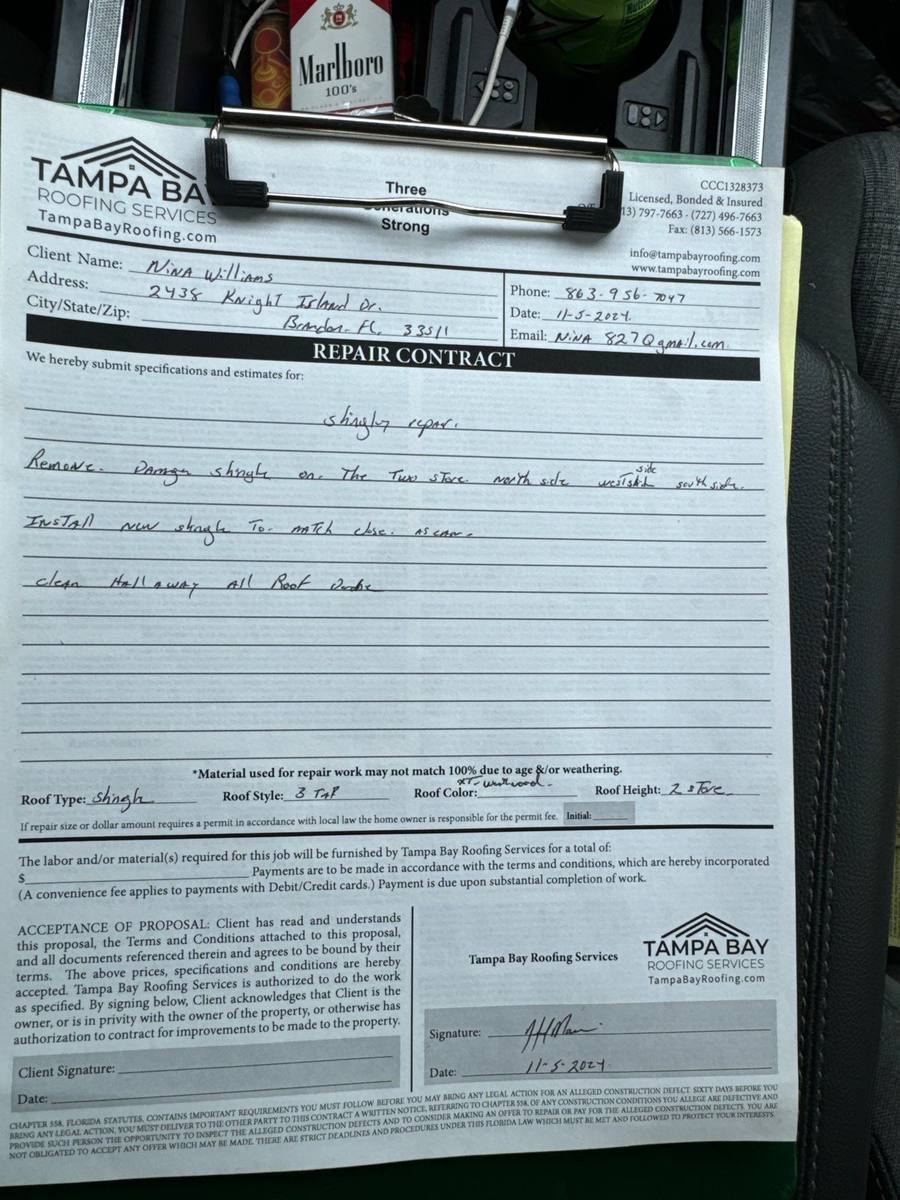 Marlboro
100's
TAMPA BA
ROOFING SERVICES
TampaBayRoofing.com
Three
Generations
Strong
CCC1328373
Licensed, Bonded & Insured
13) 797-7663 - (727) 496-7663
Fax: (813) 566-1573
info@tampabayroofing.com
www.tampabayroofing.com
Client Name: Nina Williams
Address: 2438 Knight Island Dr.
City/State/Zip: Brandon FL 33511
Phone: 863-956-7047
Date: 11-5-2024
Email: Nina 827@gmail.com
REPAIR CONTRACT
We hereby submit specifications and estimates for:
shingle repar.
Remove. Damage shingle on. The Two store. north side west side south side.
Install new shingle To. match close. as can.
clean Hall away All Roof
*Material used for repair work may not match 100% due to age &/or weathering.
Roof Type: shingle Roof Style: 3 TAP Roof Color: Roof Height: 2 store
If repair size or dollar amount requires a permit in accordance with local law the home owner is responsible for the permit fee. Initial:
The labor and/or material(s) required for this job will be furnished by Tampa Bay Roofing Services for a total of:
$ Payments are to be made in accordance with the terms and conditions, which are hereby incorporated
(A convenience fee applies to payments with Debit/Credit cards.) Payment is due upon substantial completion of work.
ACCEPTANCE OF PROPOSAL: Client has read and understands
this proposal, the Terms and Conditions attached to this proposal,
and all documents referenced therein and agrees to be bound by their
terms. The above prices, specifications and conditions are hereby
accepted. Tampa Bay Roofing Services is authorized to do the work
as specified. By signing below, Client acknowledges that Client is the
owner, or is in privity with the owner of the property, or otherwise has
authorization to contract for improvements to be made to the property.
Client Signature:
Date:
Tampa Bay Roofing Services
TAMPA BAY
ROOFING SERVICES
TampaBayRoofing.com
Signature:
Date: 11-5-2024
CHAPTER 558, FLORIDA STATUTES, CONTAINS IMPORTANT REQUIREMENTS YOU MUST FOLLOW BEFORE YOU MAY BRING ANY LEGAL ACTION FOR AN ALLEGED CONSTRUCTION DEFECT. SIXTY DAYS BEFORE YOU
BRING ANY LEGAL ACTION, YOU MUST DELIVER TO THE OTHER PARTY TO THIS CONTRACT A WRITTEN NOTICE, REFERRING TO CHAPTER 558, OF ANY CONSTRUCTION CONDITIONS YOU ALLEGE ARE DEFECTIVE AND
PROVIDE SUCH PERSON THE OPPORTUNITY TO INSPECT THE ALLEGED CONSTRUCTION DEFECTS AND TO CONSIDER MAKING AN OFFER TO REPAIR OR PAY FOR THE ALLEGED CONSTRUCTION DEFECTS. YOU ARE
NOT OBLIGATED TO ACCEPT ANY OFFER WHICH MAY BE MADE. THERE ARE STRICT DEADLINES AND PROCEDURES UNDER THIS FLORIDA LAW WHICH MUST BE MET AND FOLLOWED TO PROTECT YOUR INTERESTS.